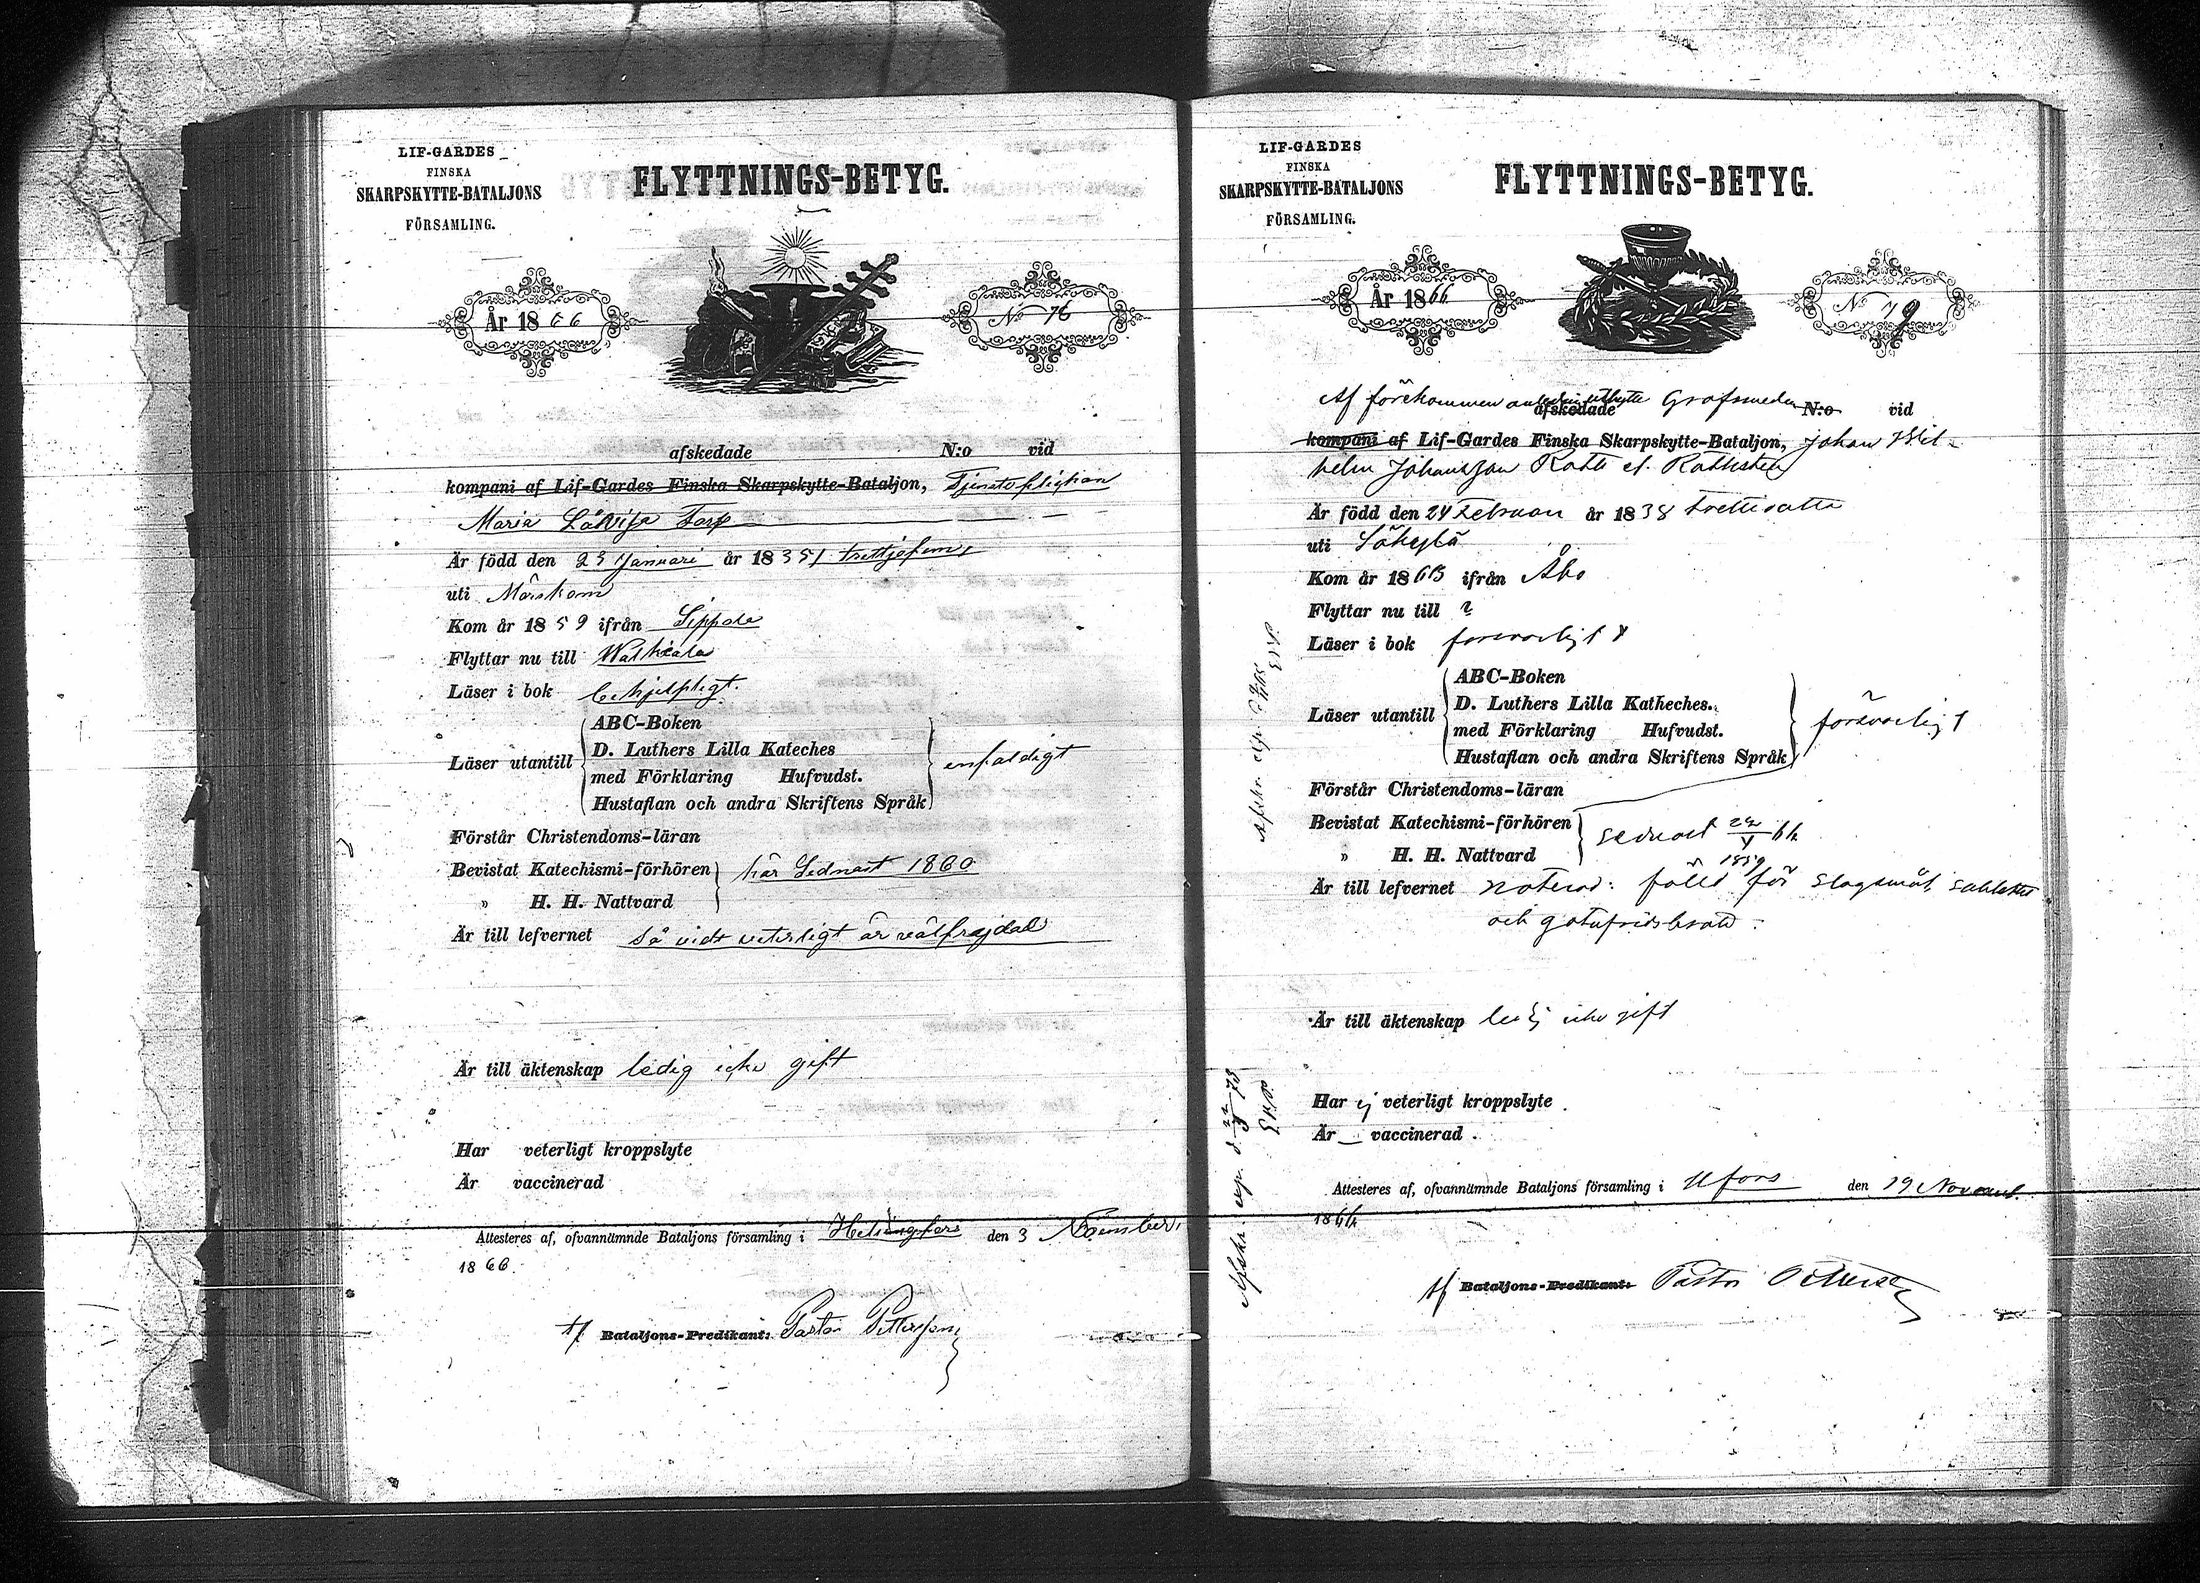 LIF-GARDES
FINSKA
SKARPSKYTTE-BATALJONS
FÖRSAMLING.
FLYTTNINGS-BETYG.
År 1866
No 76
afskedade N:o vid
kompani af Lif-Gardes Finska Skarpskytte-Bataljon,
Maria
Är född den 25 Januari år 1835
uti Mörskom
Kom år 1859 ifrån Sippola
Flyttar nu till Walkeala
Läser i bok behjelpligt.
ABC-Boken
D. Luthers Lilla Kateches
Läser utantill
med Förklaring Hufvudst.
enfaldigt
Hustaflan och andra Skriftens Språk
Förstår Christendoms-läran
Bevistat Katechismi-förhören
här Sednast 1860
" H. H. Nattvard
Är till lefvernet så vidt veterligt är välfrejdad
Är till äktenskap ledig icke gift
Har veterligt kroppslyte
Är vaccinerad
Attesteres af, ofvannämnde Bataljons församling i Helsingfors den 3 November
1866.
Af Bataljons-Predikant: Pastor
LIF-GARDES
FINSKA
SKARPSKYTTE-BATALJONS
FÖRSAMLING.
FLYTTNINGS-BETYG.
År 1866
No 79
Af förekommen Grofsmeden
afskedade N:o vid
kompani af Lif-Gardes Finska Skarpskytte-Bataljon, Johan Wil-
helm Johansson
Är född den 24 Februari år 1838 trettioåtta
uti Säkylä
Kom år 1863 ifrån Åbo
Flyttar nu till ?
Läser i bok försvarligt
ABC-Boken
D. Luthers Lilla Katheches.
Läser utantill
med Förklaring Hufvudst.
försvarligt
Hustaflan och andra Skriftens Språk
Förstår Christendoms-läran
Bevistat Katechismi-förhören
sednast 66
" H. H. Nattvard
1859
Är till lefvernet noterad: fälld för slagsmål,
och gatufridsbrott
Är till äktenskap ledig icke gift
Har ej veterligt kroppslyte
Är vaccinerad
Attesteres af, ofvannämnde Bataljons församling i Hfors den 19 Novemb.
1866
Af Bataljons-Predikant: Pastor